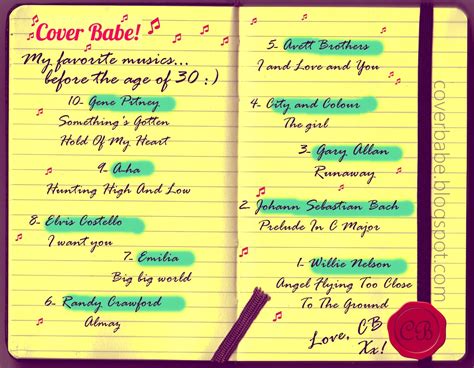 Cover Babe!
My favorite musics...
before the age of 30 :)
10- Gene Pitney
Something's Gotten
Hold Of My Heart
9- A-ha
Hunting High And Low
8- Elvis Costello
I want you
7- Emilia
Big big world
6- Randy Crawford
Almaz
5- Avett Brothers
I and Love and You
4- City and Colour
The girl
3- Gary Allan
Runaway
2- Johann Sebastian Bach
Prelude In C Major
1- Willie Nelson
Angel Flying Too Close
To The Ground
Love, CB
Xx!
CB
coverbabe.blogspot.com